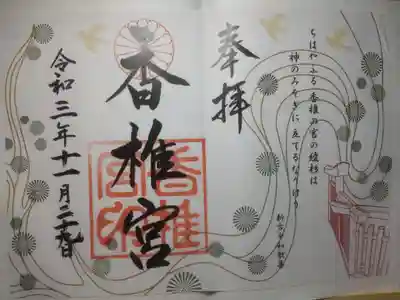 奉拝
ちはやふる 香椎の宮の綾杉は
神のみそぎに 立てるなりけり
新古今和歌集
香椎宮
香椎宮印
令和三年十一月